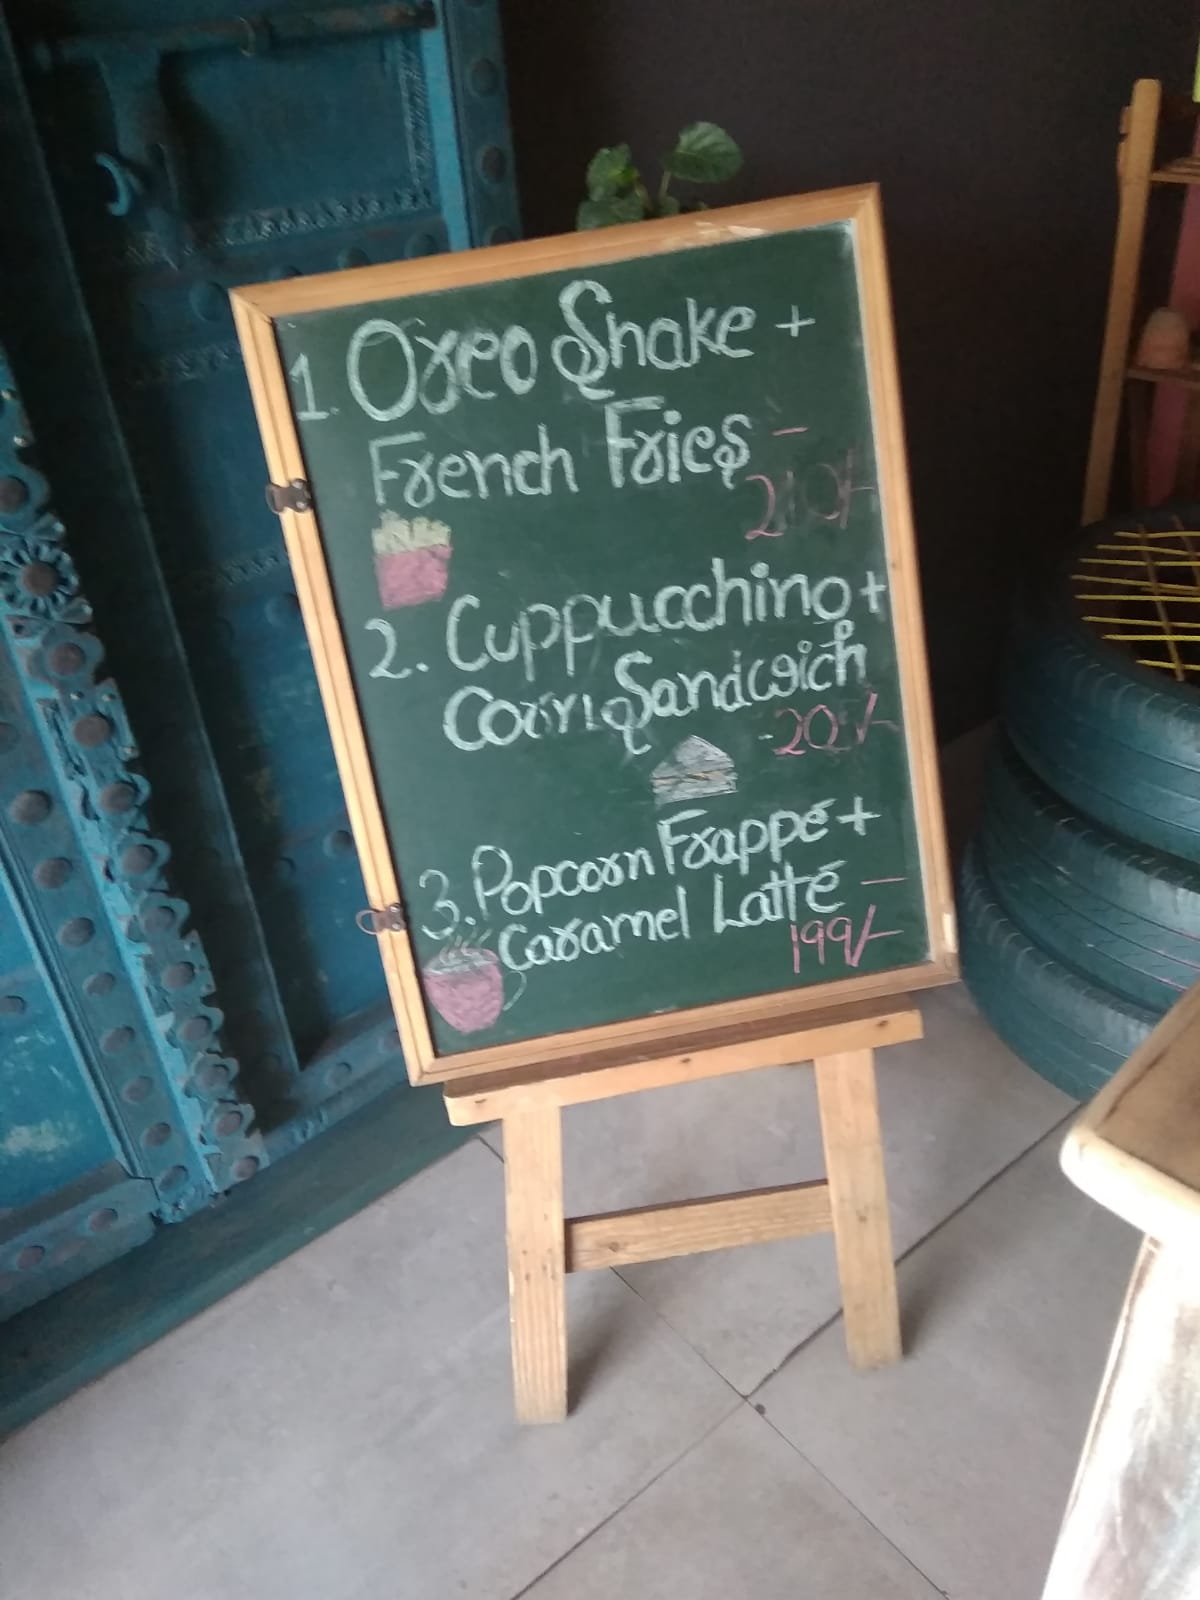 1. Oreo Shake +
French Fries -
210/-
2. Cuppucchino +
Sandwich
- 205/-
3. Popcorn Frappé +
Caramel Latté -
199/-